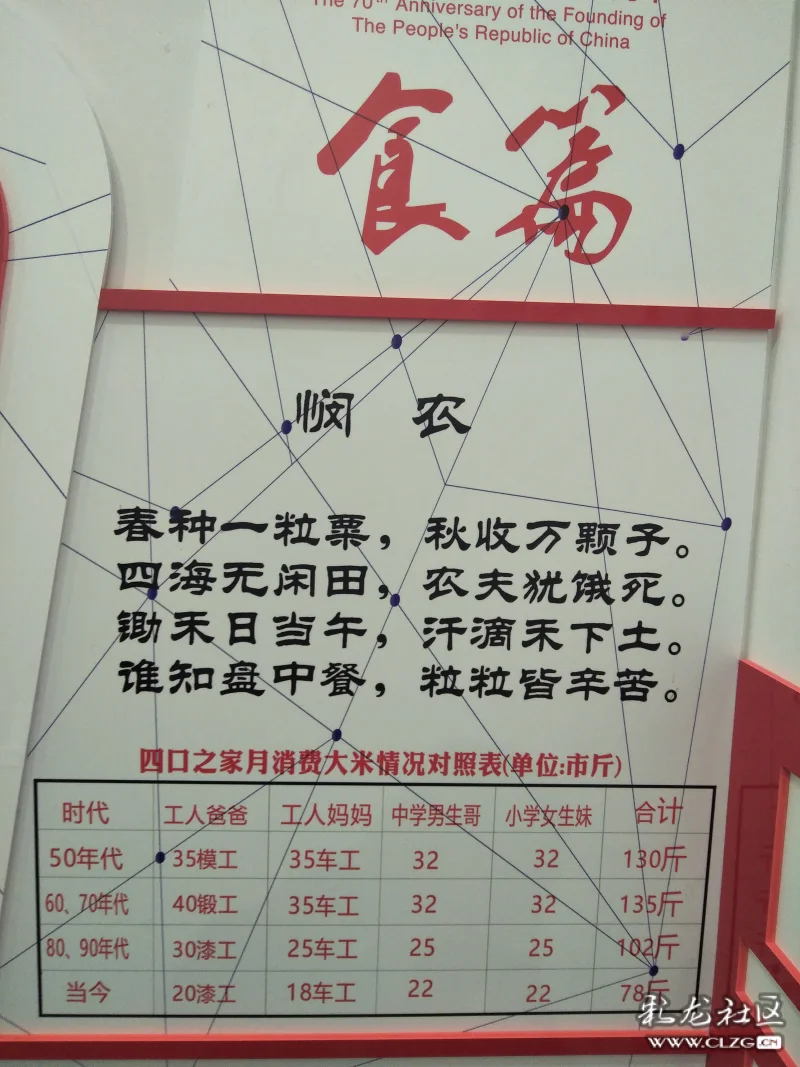 The 70th Anniversary of the Founding of
The People's Republic of China
食篇
悯农
春种一粒粟，秋收万颗子。
四海无闲田，农夫犹饿死。
锄禾日当午，汗滴禾下土。
谁知盘中餐，粒粒皆辛苦。
四口之家月消费大米情况对照表(单位:市斤)
时代 工人爸爸 工人妈妈 中学男生哥 小学女生妹 合计
50年代 35模工 35车工 32 32 130斤
60、70年代 40锻工 35车工 32 32 135斤
80、90年代 30漆工 25车工 25 25 102斤
当今 20漆工 18车工 22 22 78斤
彩龙社区
WWW.CLZG.CN